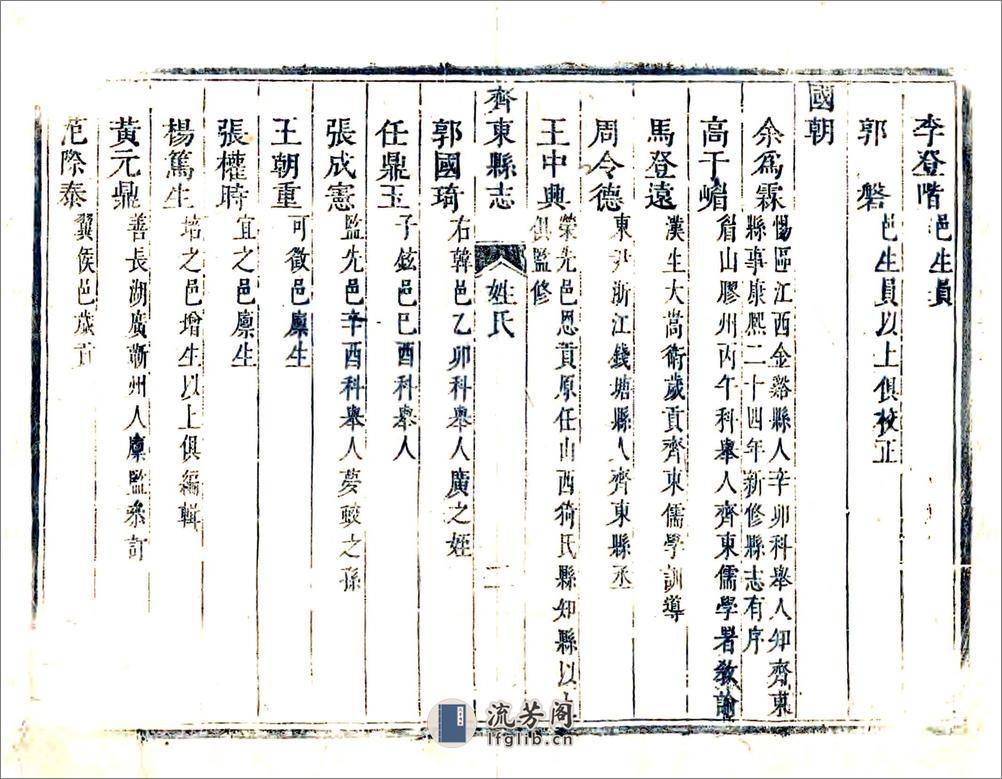 李登階 邑生員
郭磐 邑生員以上俱校正
國朝
余為霖 惕區江西金谿縣人辛卯科舉人知齊東
縣事康熙二十四年新修縣志有序
高于嵋 眉山膠州丙午科舉人齊東儒學署教諭
馬登遠 漢生大嵩衛歲貢齊東儒學訓導
周令德 東尹浙江錢塘縣人齊東縣丞
王中興 榮先邑恩貢原任山西猗氏縣知縣以上
俱監修
齊東縣志 姓氏 二
郭國琦 右韓邑乙卯科舉人廣之姪
任鼎玉 子鉉邑己酉科舉人
張成憲 監先邑辛酉科舉人夢蛟之孫
王朝重 可徵邑廩生
張權時 宜之邑廩生
楊篤生 培之邑增生以上俱編輯
黃元鼎 善長湖廣蘄州人廩監參訂
范際泰 翼侯邑歲貢
流芳阁
lfglib.cn